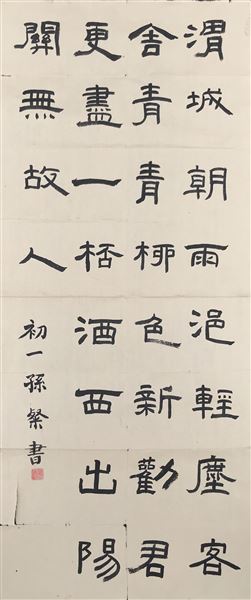 渭城朝雨浥輕塵客
舍青青柳色新勸君
更盡一桮酒西出陽
關無故人
初一孫粲書